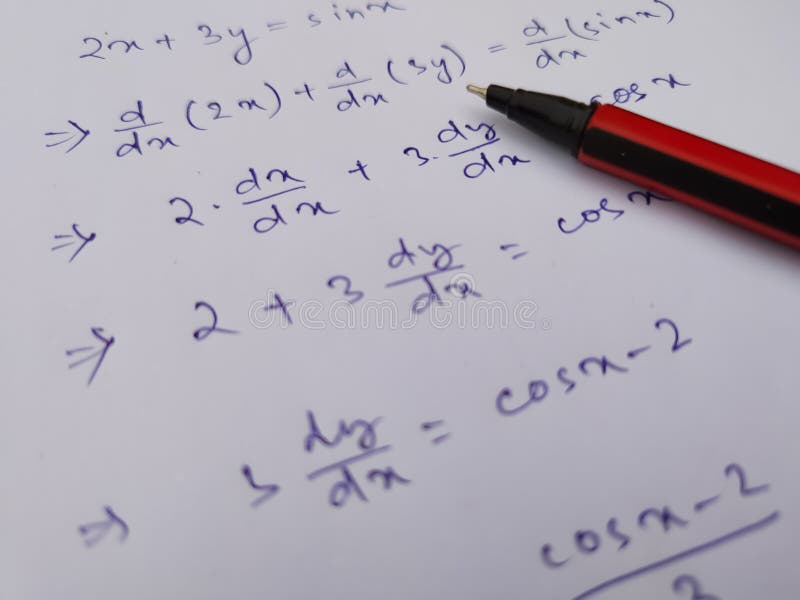 2x + 3y = sinx
⇒ d/dx (2x) + d/dx (3y) = d/dx (sinx)
⇒ 2 · dx/dx + 3 · dy/dx cosx
⇒ 2 + 3 dy/dx = cosx
⇒ 3 dy/dx = cosx - 2
⇒ cosx - 2 / 3
dreamstime